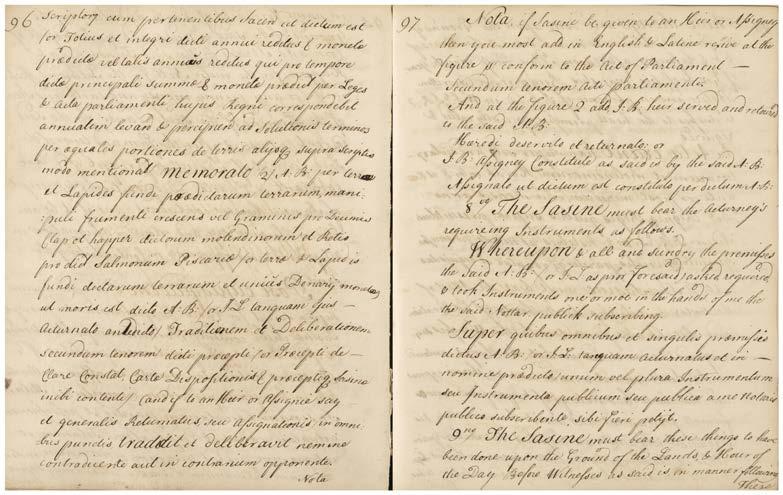 96
Scriptory cum pertinentibus Jacen ut dictum est
for Totius et integri dicti annui reditus & monete
prædicte vel talis annuis reditus qui pro tempore
dicte principali summæ & monete prædict per Leges
& Acta parliamenti hujus Regni correspondebit
annuatim levand & percipien ad solutionis terminos
per æquales portiones de terris alijsq supra scriptis
modo mentionat Memorato 2/ A:B: per terræ
et Lapides fundi prædictarum terrarum, mani:
:puli frumenti crescend vel Graminis pro Decimis
Clap et happer dictorum molendinorum et Retis
pro dict Salmonum Piscariæ/ for terræ & Lapidis
fundi dictarum terrarum et unius Denarij monetæ,
ut moris est dicto A:B: /or I:L tanquam ejus
Acturnato antedicto/ Traditionem et Deliberationem
secundum tenorem dicti præcepti /or Præcepti de
Clare Constat, Carte Dispositionis & præceptiq Sasine
inibi content/ (and if to an Heir or Assignie say
et generalis Retornatus, seu Assignationis, in omni:
bus pundis tradidit et deliberavit nemine
contradicente aut in contrarium opponente.
Nota
97
Nota, if Sasine be given to an Heir or Assigney
then you most add in English & Latine relive at the
figure 1 conform to the Act of Parliament —
Secundum tenorem Acti parliamenti.
And at the figure 2 add I:B: heir served and retoured
to the said A:B:
Hæredi deservito et retornato: or
I:B: Assigney Constitute as said is by the said A:B:
Assignato ut dictum est constituto per dictum A:B:
8 The Sasine must bear the Acturney's
requireing Instruments as follows.
Whereupon & all and sundry the premisses
the said A:B: / or I:L as prin foresaid/ asked required,
& took Instruments me or moe in the hands of me the
the said Nottar publick subscribing.
Super quibus omnibus et singulis præmissis
dictus A:B: / or I:L: tanquam acturnatus et in —
nomine prædicto/ unum vel plura Instrumentum
seu Instrumenta publicum seu publica a me notario
publico subscribente sibi fieri petijt.
9 The Sasine must bear these things to have
been done upon the Ground of the Lands, & Hour of
the Day Before Witnesses as said is in manner following
There